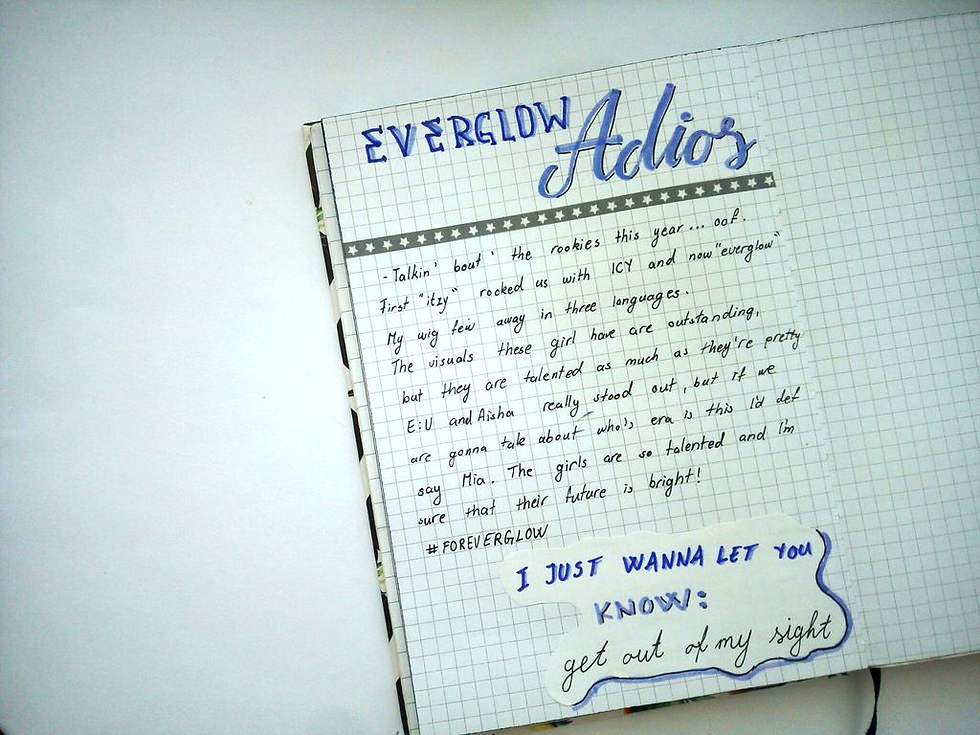 EVERGLOW Adios
-Talkin' bout' the rookies this year... oof.
First "itzy" rocked us with ICY and now "everglow"
My wig few away in three languages.
The visuals these girl have are outstanding,
but they are talented as much as they're pretty
E:U and Aisha really stood out, but if we
are gonna talk about who's era is this I'd def
say Mia. The girls are so talented and I'm
sure that their future is bright!
#FOREVERGLOW
I JUST WANNA LET YOU
KNOW:
get out of my sight